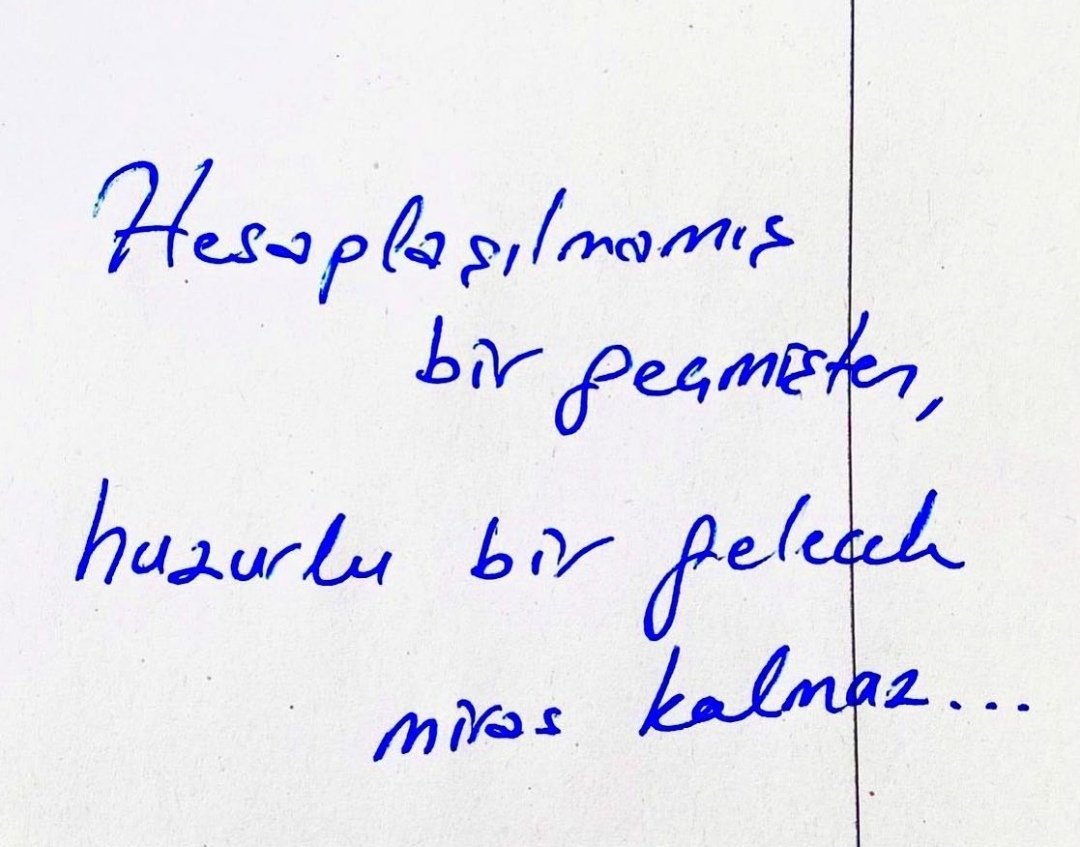 Hesaplaşılmamış
bir geçmişten,
huzurlu bir gelecek
miras kalmaz...